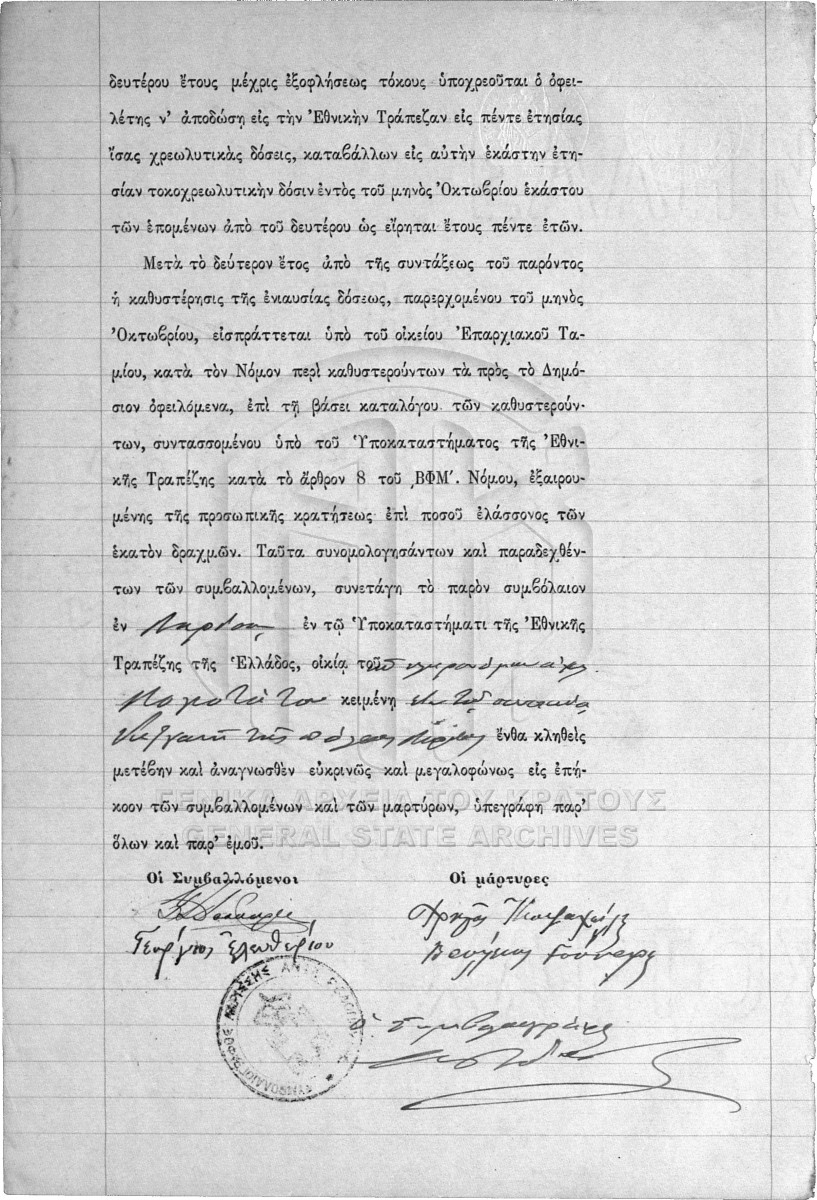 δευτέρου ἔτους μέχρις ἐξοφλήσεως τόκους ὑποχρεοῦται ὁ ὀφει-
λέτης ν' ἀποδώσῃ εἰς τὴν Ἐθνικὴν Τράπεζαν εἰς πέντε ἐτησίας
ἴσας χρεωλυτικὰς δόσεις, καταβάλλων εἰς αὐτὴν ἑκάστην ἐτη-
σίαν τοκοχρεωλυτικὴν δόσιν ἐντὸς τοῦ μηνὸς Ὀκτωβρίου ἑκάστου
τῶν ἑπομένων ἀπὸ τοῦ δευτέρου ὡς εἴρηται ἔτους πέντε ἐτῶν.
Μετὰ τὸ δεύτερον ἔτος ἀπὸ τῆς συντάξεως τοῦ παρόντος
ἡ καθυστέρησις τῆς ἐνιαυσίας δόσεως, παρερχομένου τοῦ μηνὸς
Ὀκτωβρίου, εἰσπράττεται ὑπὸ τοῦ οἰκείου Ἐπαρχιακοῦ Τα-
μίου, κατὰ τὸν Νόμον περὶ καθυστερούντων τὰ πρὸς τὸ Δημό-
σιον ὀφειλόμενα, ἐπὶ τῇ βάσει καταλόγου τῶν καθυστερούν-
των, συντασσομένου ὑπὸ τοῦ Ὑποκαταστήματος τῆς Ἐθνι-
κῆς Τραπέζης κατὰ τὸ ἄρθρον 8 τοῦ ͵ΒΦΜ΄. Νόμου, ἐξαιρου-
μένης τῆς προσωπικῆς κρατήσεως ἐπὶ ποσοῦ ἐλάσσονος τῶν
ἑκατὸν δραχμῶν. Ταῦτα συνομολογησάντων καὶ παραδεχθέν-
των τῶν συμβαλλομένων, συνετάγη τὸ παρὸν συμβόλαιον
ἐν Λαρίσῃ ἐν τῷ Ὑποκαταστήματι τῆς Ἐθνικῆς
Τραπέζης τῆς Ἑλλάδος, οἰκίᾳ τοῦ
κειμένῃ
τῆς πόλεως ἔνθα κληθεὶς
μετέβην καὶ ἀναγνωσθὲν εὐκρινῶς καὶ μεγαλοφώνως εἰς ἐπή-
κοον τῶν συμβαλλομένων καὶ τῶν μαρτύρων, ὑπεγράφη παρ'
ὅλων καὶ παρ' ἐμοῦ.
ΓΕΝΙΚΑ ΑΡΧΕΙΑ ΤΟΥ ΚΡΑΤΟΥΣ
GENERAL STATE ARCHIVES
Οἱ Συμβαλλόμενοι Οἱ μάρτυρες
Γεώργιος Ἐλευθερίου
ὁ Συμβολαιογράφος
ΣΥΜΒΟΛΑΙΟΓΡΑΦΟΣ ΛΑΡΙΣΣΗΣ